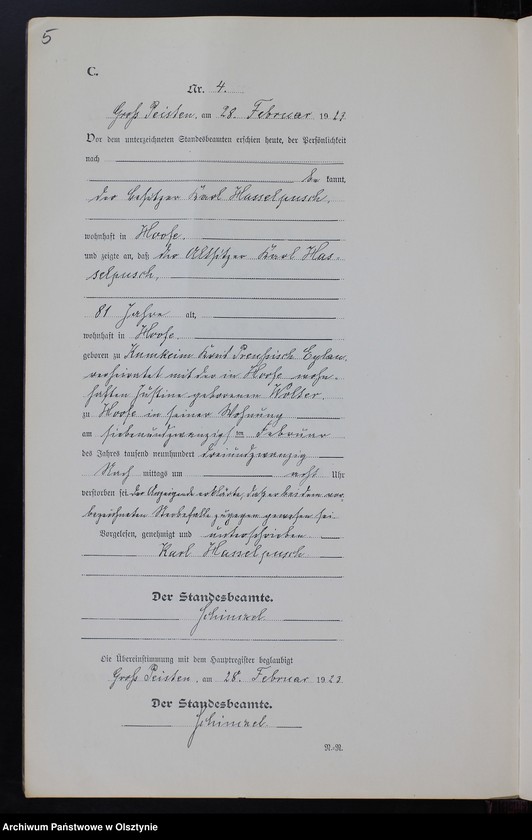 5
C.
Nr. 4.
Groß Peisten, am 28. Februar 1923.
Vor dem unterzeichneten Standesbeamten erschien heute, der Persönlichkeit
nach
be kannt,
der Besitzer Karl Hasselpusch,
wohnhaft in Hoofe,
und zeigte an, daß der Altsitzer Karl Has-
selpusch,
81 Jahre alt,
wohnhaft in Hoofe,
geboren zu Kumkeim Kreis Preußisch Eylau,
verheiratet mit der in Hoofe wohn-
haften Justine geborenen Wolter,
zu Hoofe in seiner Wohnung
am siebenundzwanzigsten Februar
des Jahres tausend neunhundert dreiundzwanzig
Nach mittags um acht Uhr
verstorben sei. Der Anzeigende erklärte, daß er bei dem vor-
bezeichneten Sterbefalle zugegen gewesen sei
Vorgelesen, genehmigt und unterschrieben
Karl Hasselpusch
Der Standesbeamte.
Schimmel
Die Übereinstimmung mit dem Hauptregister beglaubigt
Groß Peisten, am 28. Februar 1923
Der Standesbeamte.
Schimmel
N.-R.
Archiwum Państwowe w Olsztynie